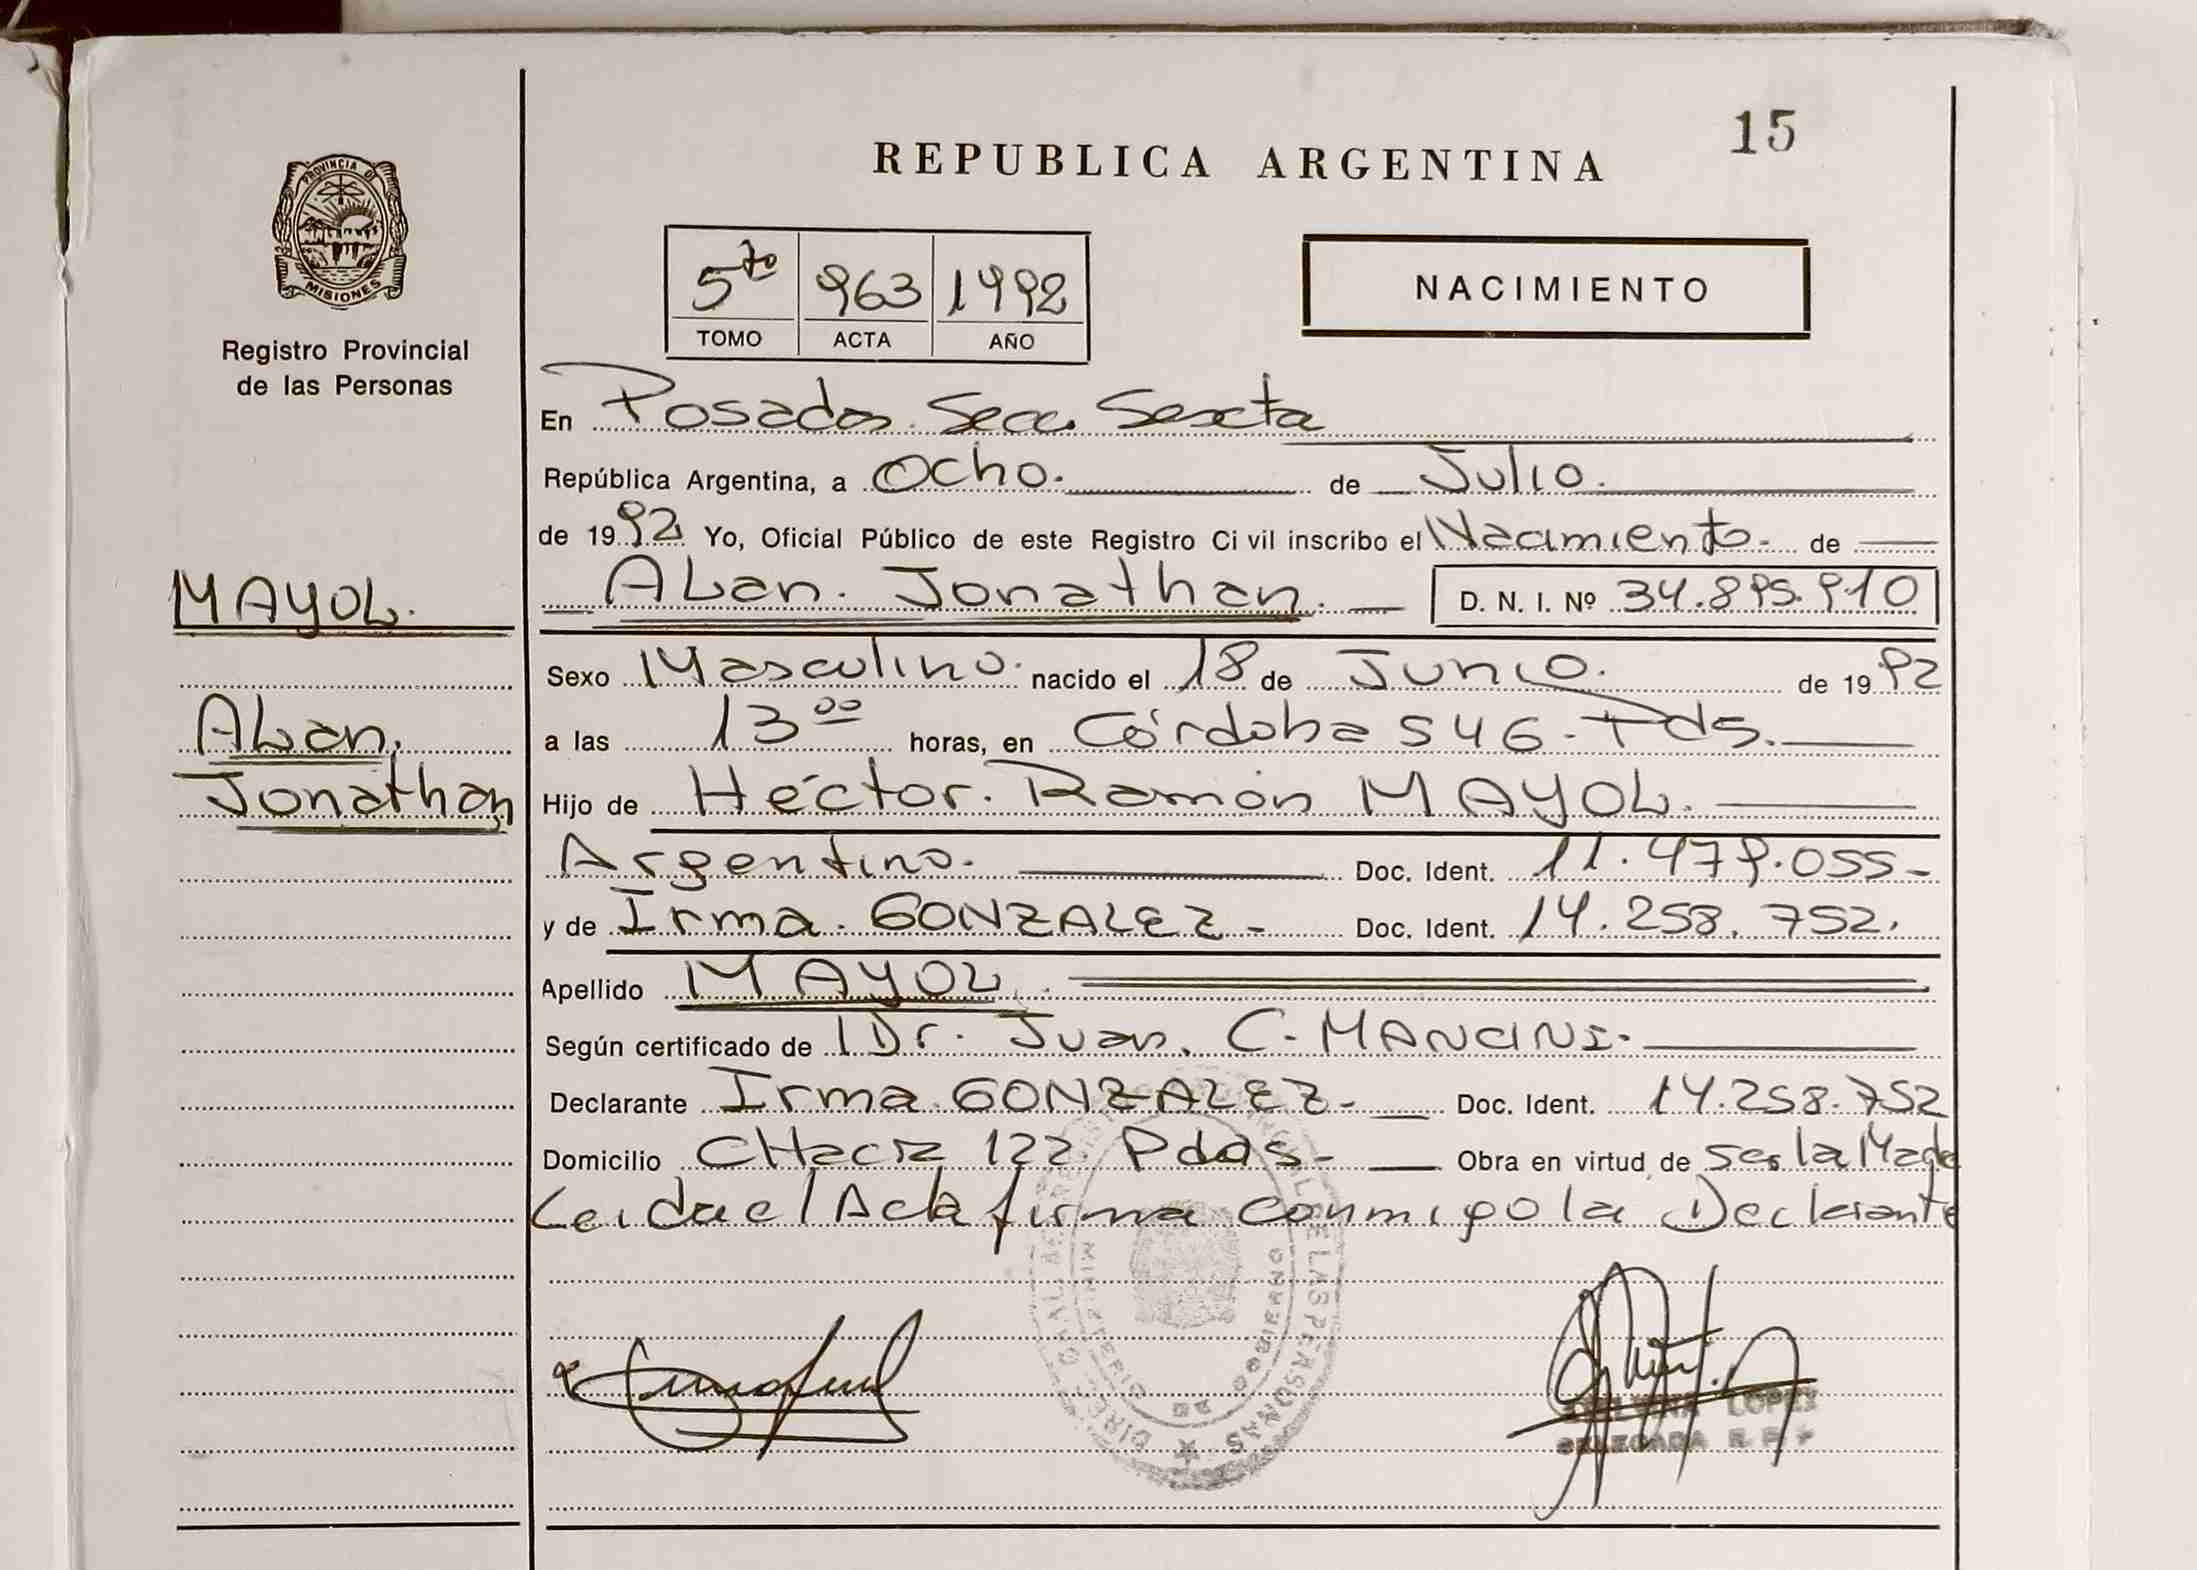 15
REPUBLICA ARGENTINA
PROVINCIA DE
MISIONES
Registro Provincial
de las Personas
5to 963 1992
TOMO ACTA AÑO
NACIMIENTO
En Posadas Secc. Sexta
República Argentina, a Ocho. de Julio.
de 1992 Yo, Oficial Público de este Registro Ci vil inscribo el Nacimiento- de
MAYOL.
Alan. Jonathan. D. N. I. Nº 34.895.910
Sexo Masculino. nacido el 18 de Junio. de 1992
Alan.
a las 13 00 horas, en Córdoba 546 - Pds.
Jonathan
Hijo de Héctor. Ramón MAYOL.
Argentino. Doc. Ident. 11.479.055-
y de Irma. GONZALEZ - Doc. Ident. 14.258.752.
Apellido MAYOL.
Según certificado de Dr. Juan. C. MANCINI.
Declarante Irma GONZALEZ- Doc. Ident. 14.258.752
Domicilio CHacra 122. Pdas- Obra en virtud de ser la Madre
Leida el Acta firma conmigo la Declarante
DE LAS PERSONAS
GOBIERNO
LOPEZ
DELEGADA